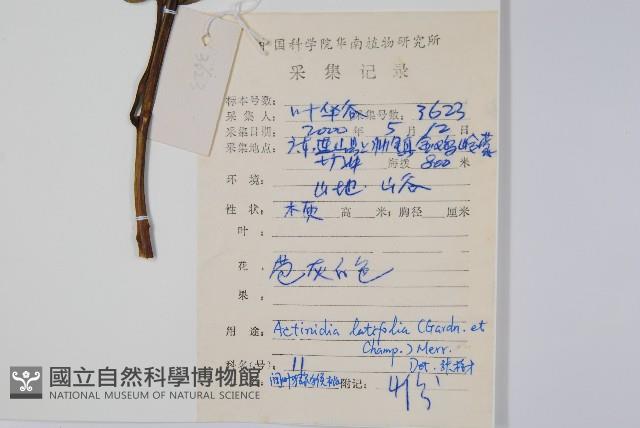 中国科学院华南植物研究所
采集记录
标本号数:
采集人: 叶华谷 采集号数: 3623
采集日期: 2000 年 5 月 12 日
采集地点: 连山县 海拨 800 米
环境: 山地 山谷
性状: 木质 高 米; 胸径 厘米
叶:
花: 苞灰白色
果:
用途: Actinidia latifolia (Gardn. et
Champ.) Merr.
科名(号): 11 Det.
阔叶猕猴桃 附记: 4份
3623
國立自然科學博物館
NATIONAL MUSEUM OF NATURAL SCIENCE